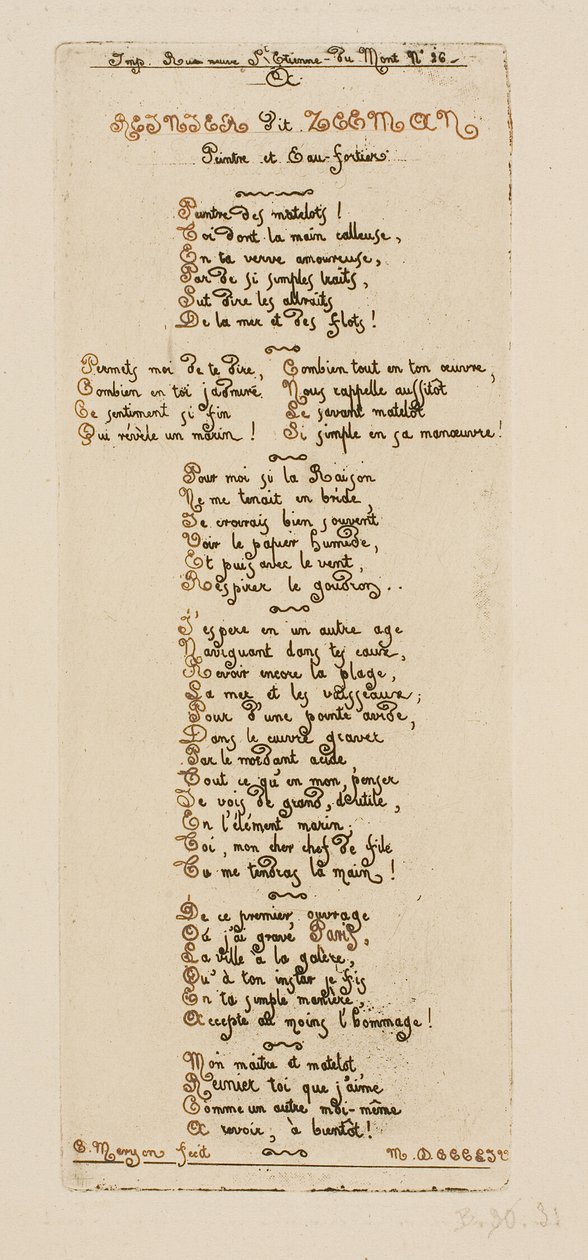 Imp. Rue neuve St Etienne-du Mont No 26-
A
REINIER dit ZEEMAN
Peintre et Eau-fortier.
Peintre des matelots !
Toi dont la main calleuse,
En ta verve amoureuse,
Par de si simples traits,
Sut dire les attraits
De la mer et des flots !
Permets moi de te dire,
Combien en toi j'admire
Ce sentiment si fin
Qui révèle un marin !
Combien tout en ton œuvre,
Nous rappelle aussitôt
Le savant matelot
Si simple en sa manœuvre !
Pour moi si la Raison
Ne me tenait en bride,
Je croirais bien souvent
Voir le papier humide,
Et puis avec le vent,
Respirer le goudron..
J'espere en un autre age
Naviguant dans tes eaux,
Revoir encore la plage,
La mer et les vaisseaux ;
Pour d'une pointe avide,
Dans le cuivre graver
Par le mordant acide
Tout ce qu'en mon penser
Je vois de grand, d'utile,
En l'élément marin ;
Toi, mon cher chef de file
Tu me tendras la main !
De ce premier ouvrage
Où j'ai gravé Paris,
La ville à la galère,
Qu'à ton instar je fis
En ta simple manière,
Accepte au moins l'hommage !
Mon maitre et matelot
Reinier toi que j'aime
Comme un autre moi-même
A revoir, à bientôt !
C. Meryon fecit
M.DCCCLIV
B.90. 31